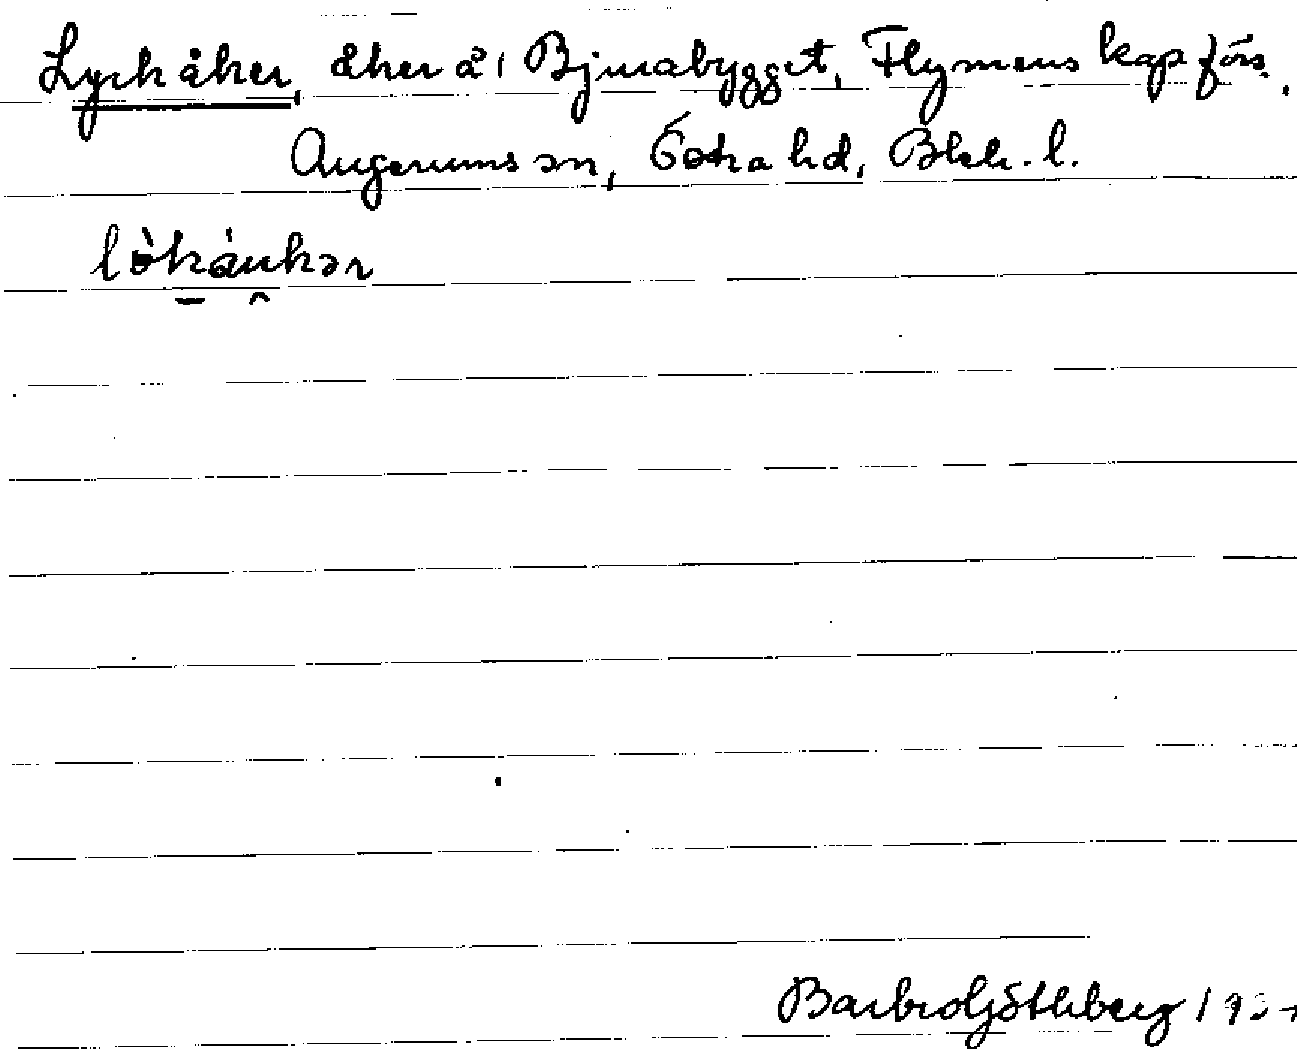 Lyckåker, åker å i Bjurabygget, Flymens kapförs.
Augerums sn, Östra hd, Blek. l.
lòkáukər
Barbro Göthberg